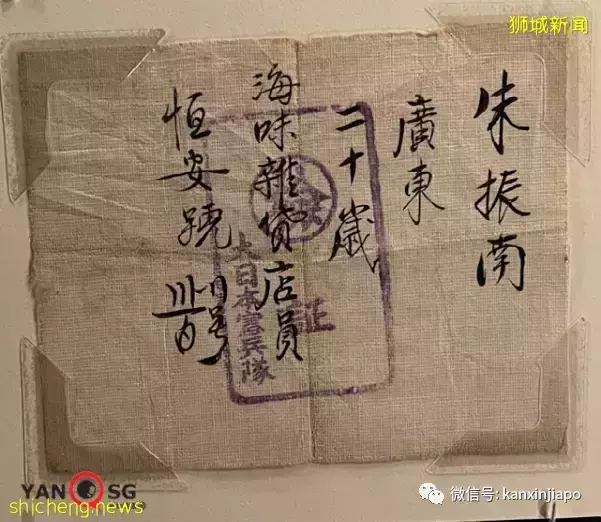 狮城新闻
朱振南
廣東
二十歲
海味雜貨店員
恒安蹺
証
大日本憲兵隊
YAN SG
shicheng.news
微信号: kanxinjiapo